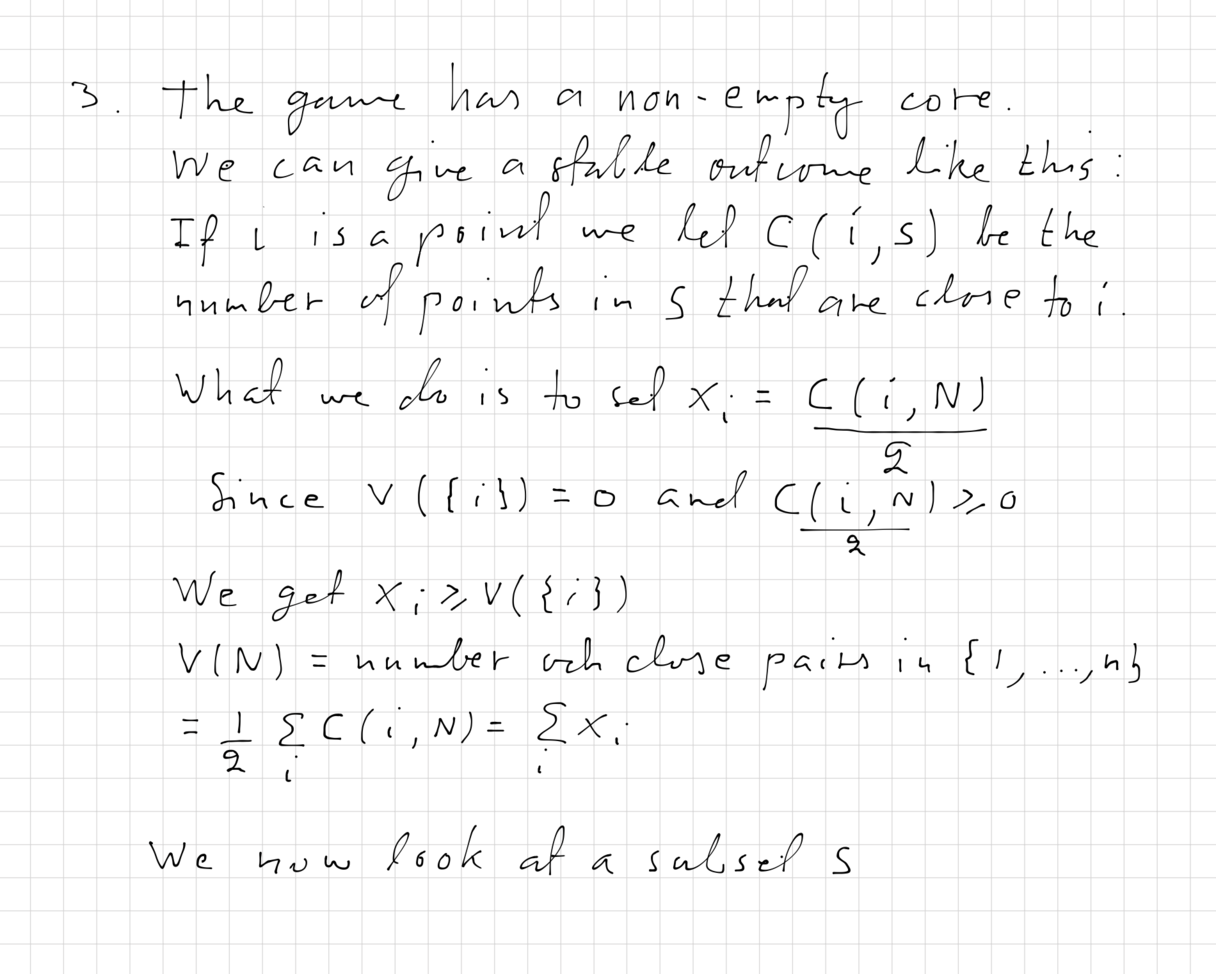 3. The game has a non-empty core.
We can give a stable outcome like this:
If i is a point we let C(i,S) be the
number of points in S that are close to i.
What we do is to set x_i = C(i,N)/2
Since V({i}) = 0 and C(i,N)/2 ≥ 0
We get x_i ≥ V({i})
V(N) = number och close pairs in {1,...,n}
= 1/2 Σ_i C(i,N) = Σ_i x_i
We now look at a subset S